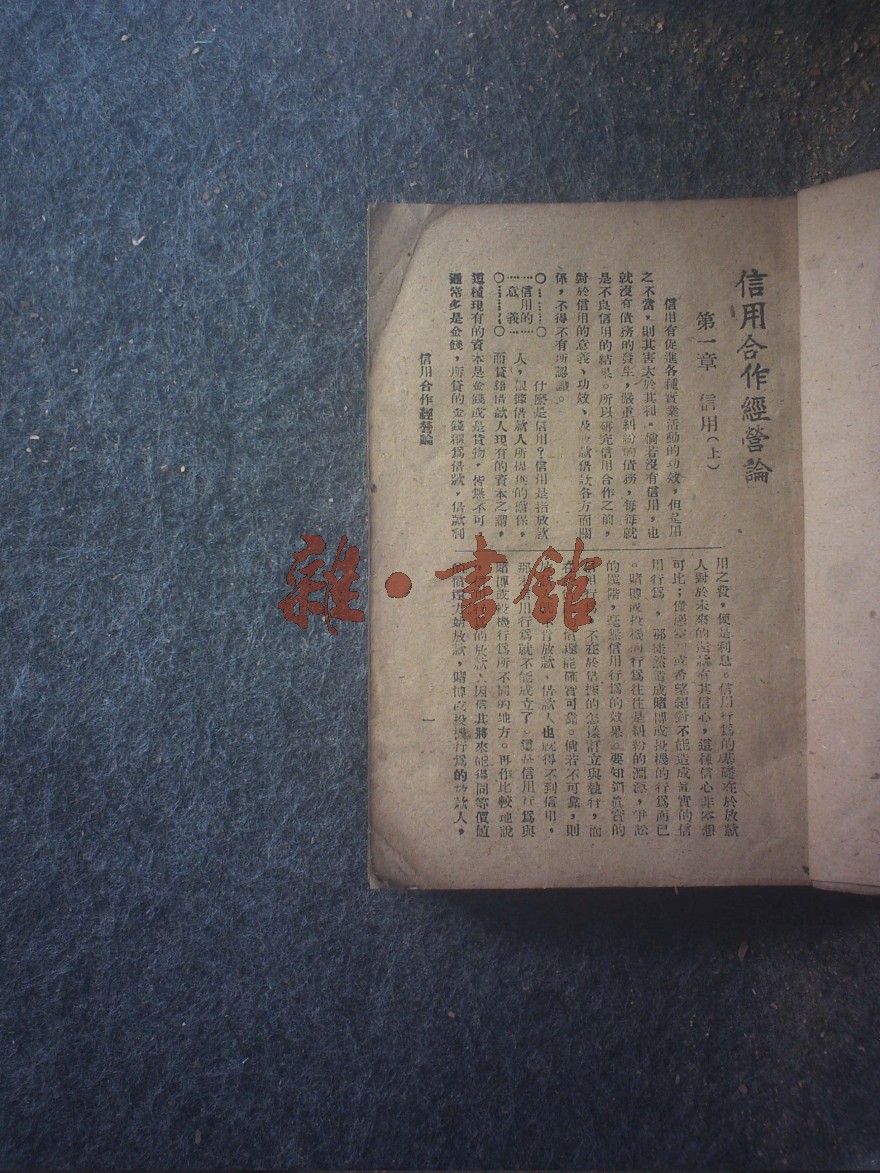 信用合作經營論
第一章 信用（上）
信用有促進各種實業活動的功效，但是用
之不當，則其害大於其利。倘若沒有信用，也
就沒有債務的發生，嚴重糾紛的債務，每每就
是不良信用的結果。所以研究信用合作之前，
對於信用的意義、功效、及放款借款各方面關
係，不得不有所認識。
信用的
意義
什麼是信用？信用是指放款
人，根據借款人所提供的擔保，
而貸給借款人現有的資本之謂，
這種現有的資本是金錢或是貨物，皆無不可，
通常多是金錢，所貸的金錢稱爲借款，借款利
用之報，便是利息。信用行爲的基礎在於放款
人對於未來的還款有其信心，這種信心非空想
可比；僅憑空想或希望絕對不能造成眞實的信
用行爲，那徒然造成賭博或投機的行爲而已
。賭博或投機的行爲往往是糾紛的淵源，爭訟
的階，毫無信用行爲的效果。要知道眞實的
信用行不在於借據的怎樣訂立與執行，而
在償還能確實可靠。倘若不可靠，則
肯放款，借款人也就得不到信用，
那用行爲就不能成立了。這是信用行爲與
賭博或投機行爲所不同的地方。再作比較地說
的放款人因信其將來能得同等價值
的償還力始放款，賭博或投機行爲的放款人，
信用合作經營論
一
雜·書館